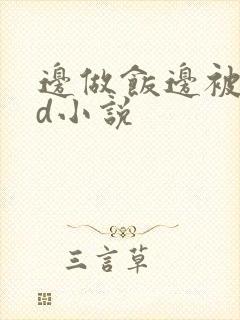 邊做飯邊被
d小說
三言草